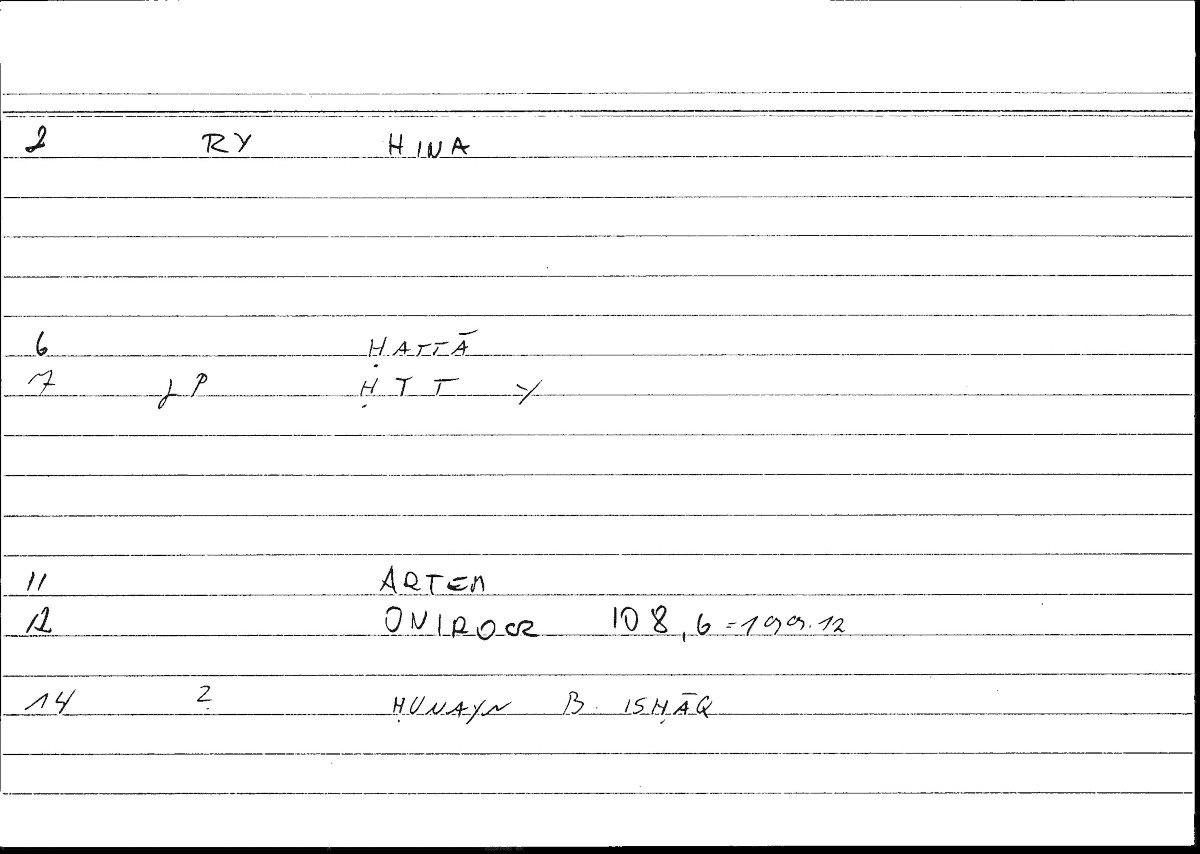 2 RY HINA
6 ḤATTĀ
7 JP ḤTT Y
11 ARTEM
12 ONIROCR 108,6=199.12
14 2 ḤUNAYN B. ISḤĀQ